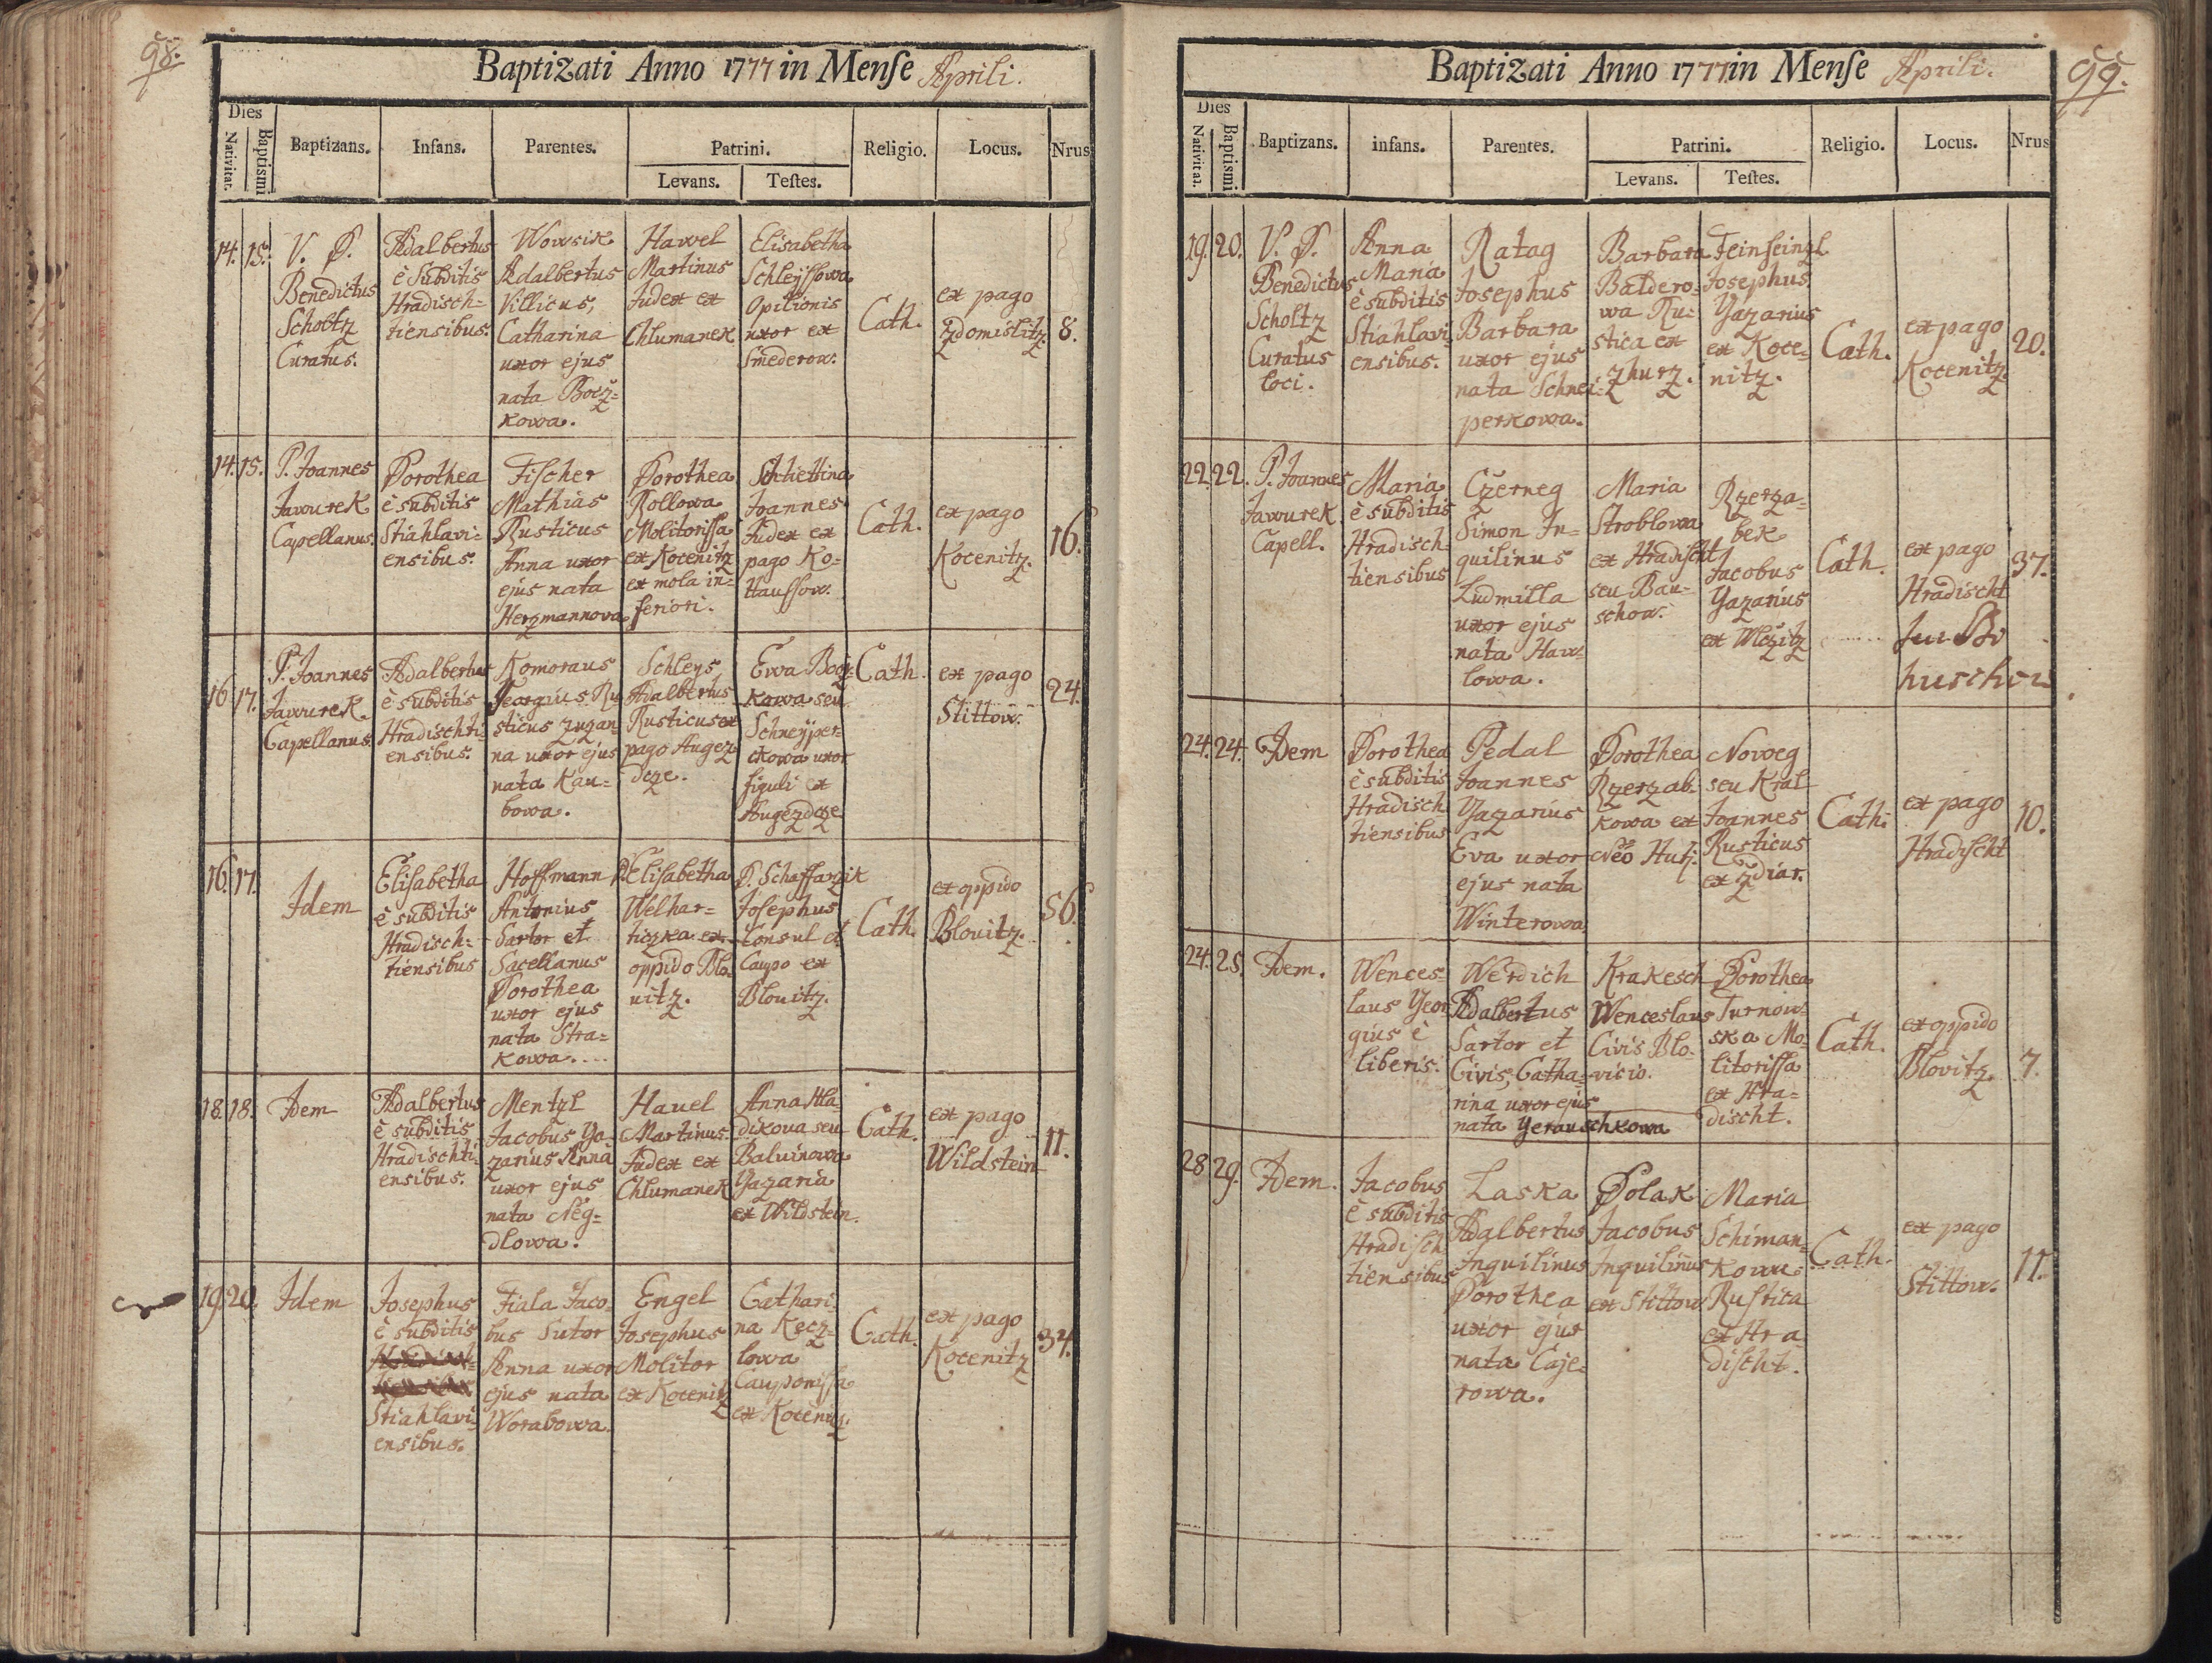 98.
Baptizati Anno 1777 in Menſe Aprili.
Dies
Nativitat.
Baptismi
Baptizans.
Infans.
Parentes.
Patrini.
Levans.
Teſtes.
Religio.
Locus.
Nrus
14.
15.
V. P.
Benedictus
Scholtz
Curatus.
Adalbertus
è Subditis
Hradisch=
tiensibus.
Wowsik
Adalbertus
Villicus,
Catharina
uxor ejus
nata Bocz=
kowa.
Hawel
Martinus
Judex ex
Chlumanek
Elisabetha
Schleyſſowa
Opilionis
uxor ex
Smederow.
Cath.
ex pago
Zdomislitz.
8.
14.
15.
P. Joannes
Jawurek
Capellanus.
Dorothea
è subditis
Stiahlavi=
ensibus.
Fiſcher
Mathias
Rusticus
Anna uxor
ejus nata
Herzmannova
Dorothea
Rollowa
Molitoriſſa
ex Kocenitz
ex mola in=
feriori.
Schiettina
Joannes
Judex ex
pago Ko=
Hauſſow.
Cath.
ex pago
Kocenitz.
16.
16
17.
P. Joannes
Jawurek
Capellanus.
Adalbertus
è subditis
Hradischti=
ensibus.
Komoraus
Georgius Ru
sticus Zuzan=
na uxor ejus
nata Kau=
bowa.
Schleys
Adalbertus
Rusticus ex
pago Augez
dcze.
Ewa Bocz=
kowa seu
Schneyper=
ckowa uxor
figuli ex
Augezdcze
Cath.
ex pago
Stittow.
24.
16.
17.
Idem
Elisabetha
è subditis
Hradisch=
tiensibus
Hoffmann
Antonius
Sartor et
Sacellanus
Dorothea
uxor ejus
nata Stra=
kowa.
Elisabetha
Welhar=
ticzka ex
oppido Blo
uitz.
D. Schaffarzik
Joſephus
Consul et
Caupo ex
Blouitz.
Cath.
ex oppido
Blouitz.
56.
18.
18.
Idem
Adalbertus
è subditis
Hradischti=
ensibus.
Mentzl
Jacobus Ya
zarius Anna
uxor ejus
nata Neg=
dlowa.
Havel
Martinus.
Judex ex
Chlumanek
Anna Hla=
dikova seu
Baluinowa
Yazaria
ex Wildstein.
Cath.
ex pago
Wildstein
11.
19.
20.
Idem
Josephus
è subditis
Stiahlavi=
ensibus.
Fiala Jaco=
bus Sutor
Anna uxor
ejus nata
Worabowa.
Engel
Josephus
Molitor
ex Kocenitz
Cathari=
na Kecz=
lowa
Cauponiſſa
ex Kocenitz.
Cath.
ex pago
Kocenitz
34.
99.
Baptizati Anno 1777 in Menſe Aprili.
Dies
Nativitat.
Baptismi
Baptizans.
infans.
Parentes.
Patrini.
Levans.
Teſtes.
Religio.
Locus.
Nrus
19.
20.
V. P.
Benedictus
Scholtz
Curatus
loci.
Anna
Maria
è subditis
Stiahlavi
ensibus.
Ratag
Josephus
Barbara
uxor ejus
nata Schnei=
perkowa.
Barbara
Baldero=
wa Ru=
stica ex
Zhurz.
Feinſeinzl
Josephus
Yazarius
ex Koce=
nitz.
Cath.
ex pago
Kocenitz.
20.
22.
22.
P. Joannes
Jawurek
Capell.
Maria
è subditis
Hradisch=
tiensibus
Czerneg
Simon In=
quilinus
Ludmilla
uxor ejus
nata Haw=
lowa.
Maria
Stroblowa
ex Hradiſcht
seu Bau=
schow.
Rzerza=
bek
Jacobus
Yazarius
ex Wlczitz
Cath.
ex pago
Hradischt
37.
24.
24.
Idem
Dorothea
è subditis
Hradisch
tiensibus
Pedal
Joannes
Yazarius
Eva uxor
ejus nata
Winterowa
Dorothea
Rzerzab=
kowa ex
Neo Hutj.
Noweg
seu Kral
Joannes
Rusticus
ex Zdiar.
Cath.
ex pago
Hradiſcht
10.
24.
25.
Idem.
Wences=
laus Yeor
gius è
liberis.
Werdich
Adalbertus
Sartor et
Civis, Catha=
rina uxor ejus
nata Yerauschkowa
Krakesch
Wenceslaus
Civis Blo=
vicio.
Dorothea
Turnow=
ska Mo=
litoriſſa
ex Hra=
discht.
Cath.
ex oppido
Blovitz.
7.
28.
29.
Idem.
Jacobus
è subditis
Hradiſch
tiensibus
Laska
Adalbertus
Inquilinus
Dorothea
uxor ejus
nata Caje=
rowa.
Polak
Jacobus
Inquilinus
ex Stittow
Maria
Schiman=
kowa
Rustica
ex Hra
diſcht.
Cath.
ex pago
Stittow.
11.